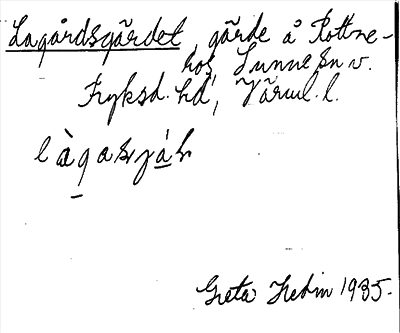 Lagårdsgärdet, gärde å Rottne-
hos, Sunne sn v.
Fryksd. hd, Värml. l.
Greta Hedin 1935.